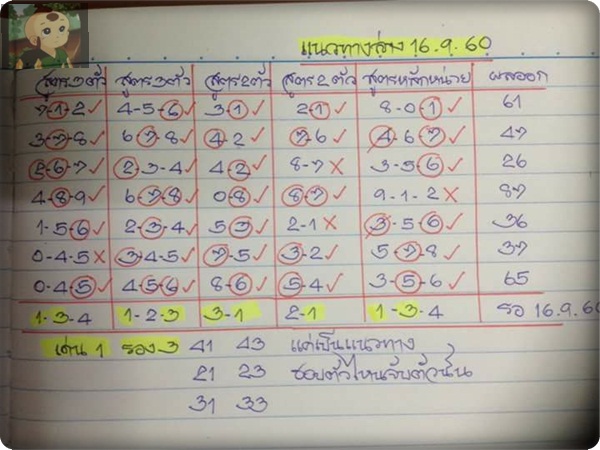 แนวทางล่าง 16.9.60
สูตร3ตัว สูตร3ตัว สูตร2ตัว สูตร2ตัว สูตรหลักหน่วย ผลออก
7-1-2✓ 4-5-6✓ 3-1✓ 2-1✓ 8-0-1✓ 61
3-7-8✓ 6-7-8✓ 4-2✓ 7-6✓ 4-6-7✓ 47
2-6-7✓ 2-3-4✓ 4-2✓ 8-7× 3-5-6✓ 26
4-8-9✓ 6-7-8✓ 0-8✓ 8-7✓ 9-1-2× 87
1-5-6✓ 2-3-4✓ 5-3✓ 2-1× 3-5-6✓ 36
0-4-5× 3-4-5✓ 7-5✓ 3-2✓ 5-7-8✓ 37
0-4-5✓ 4-5-6✓ 8-6✓ 5-4✓ 3-5-6✓ 65
1-3-4 1-2-3 3-1 2-1 1-3-4 รอ 16.9.60
เด่น 1 รอง 3 41 43 แค่เป็นแนวทาง
21 23 ชอบตัวไหนจับตัวนั้น
31 33